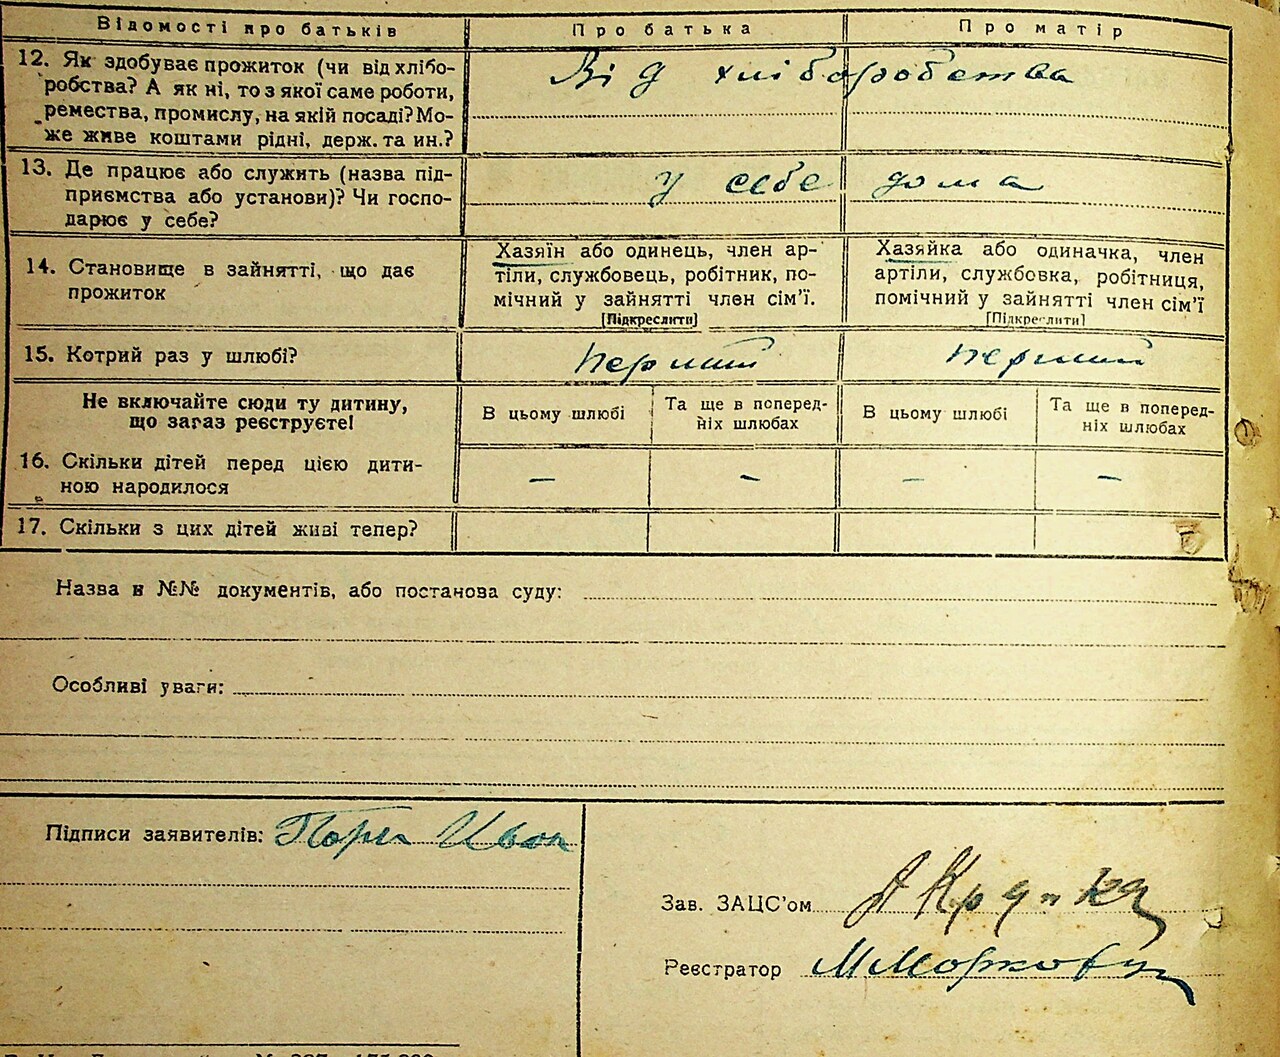 Відомості про батьків
Про батька
Про матір
12. Як здобуває прожиток (чи від хлібо-
робства? А як ні, то з якої саме роботи,
ремества, промислу, на якій посаді? Мо-
же живе коштами рідні, держ. та ин.?
Від хліборобства
13. Де працює або служить (назва під-
приємства або установи)? Чи госпо-
дарює у себе?
у себе дома
14. Становище в зайнятті, що дає
прожиток
Хазяїн або одинець, член ар-
тіли, службовець, робітник, по-
мічний у зайнятті член сім'ї.
[Підкреслити]
Хазяйка або одиначка, член
артіли, службовка, робітниця,
помічний у зайнятті член сім'ї
[Підкреслити]
15. Котрий раз у шлюбі?
перший
перший
Не включайте сюди ту дитину,
що зараз реєструєте!
В цьому шлюбі
Та ще в поперед-
ніх шлюбах
В цьому шлюбі
Та ще в поперед-
ніх шлюбах
16. Скільки дітей перед цією дити-
ною народилося
– – – –
17. Скільки з цих дітей живі тепер?
Назва и №№ документів, або постанова суду:
Особливі уваги:
Підписи заявителів:
Зав. ЗАЦС'ом
Реєстратор